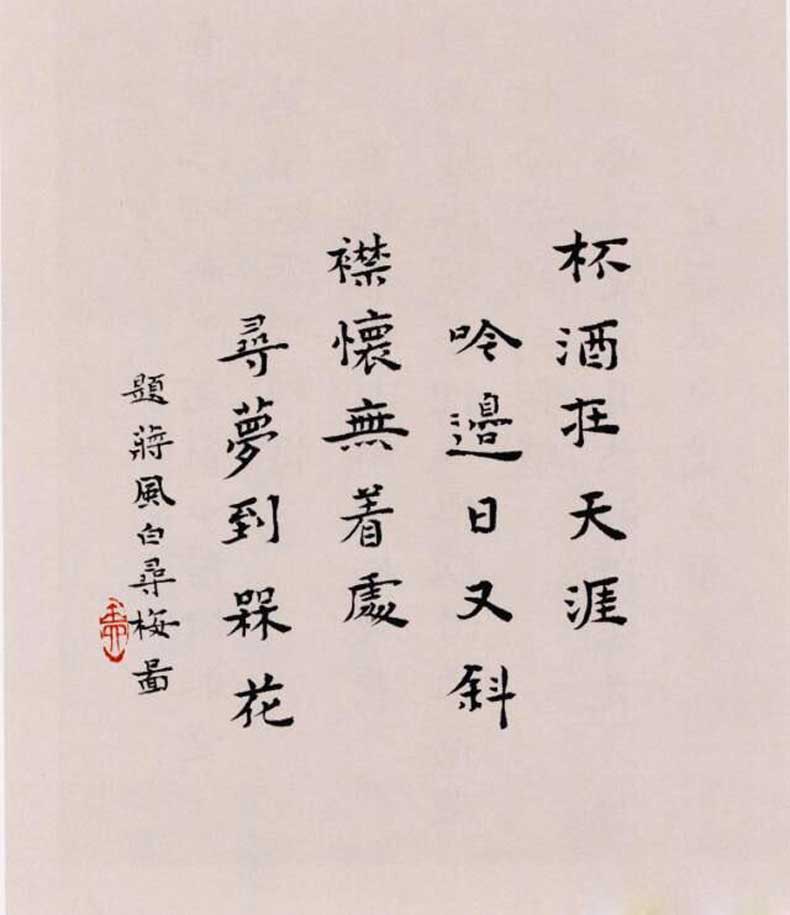 杯酒在天涯
吟邊日又斜
襟懷無着處
尋夢到槑花
題蔣風白尋梅圖